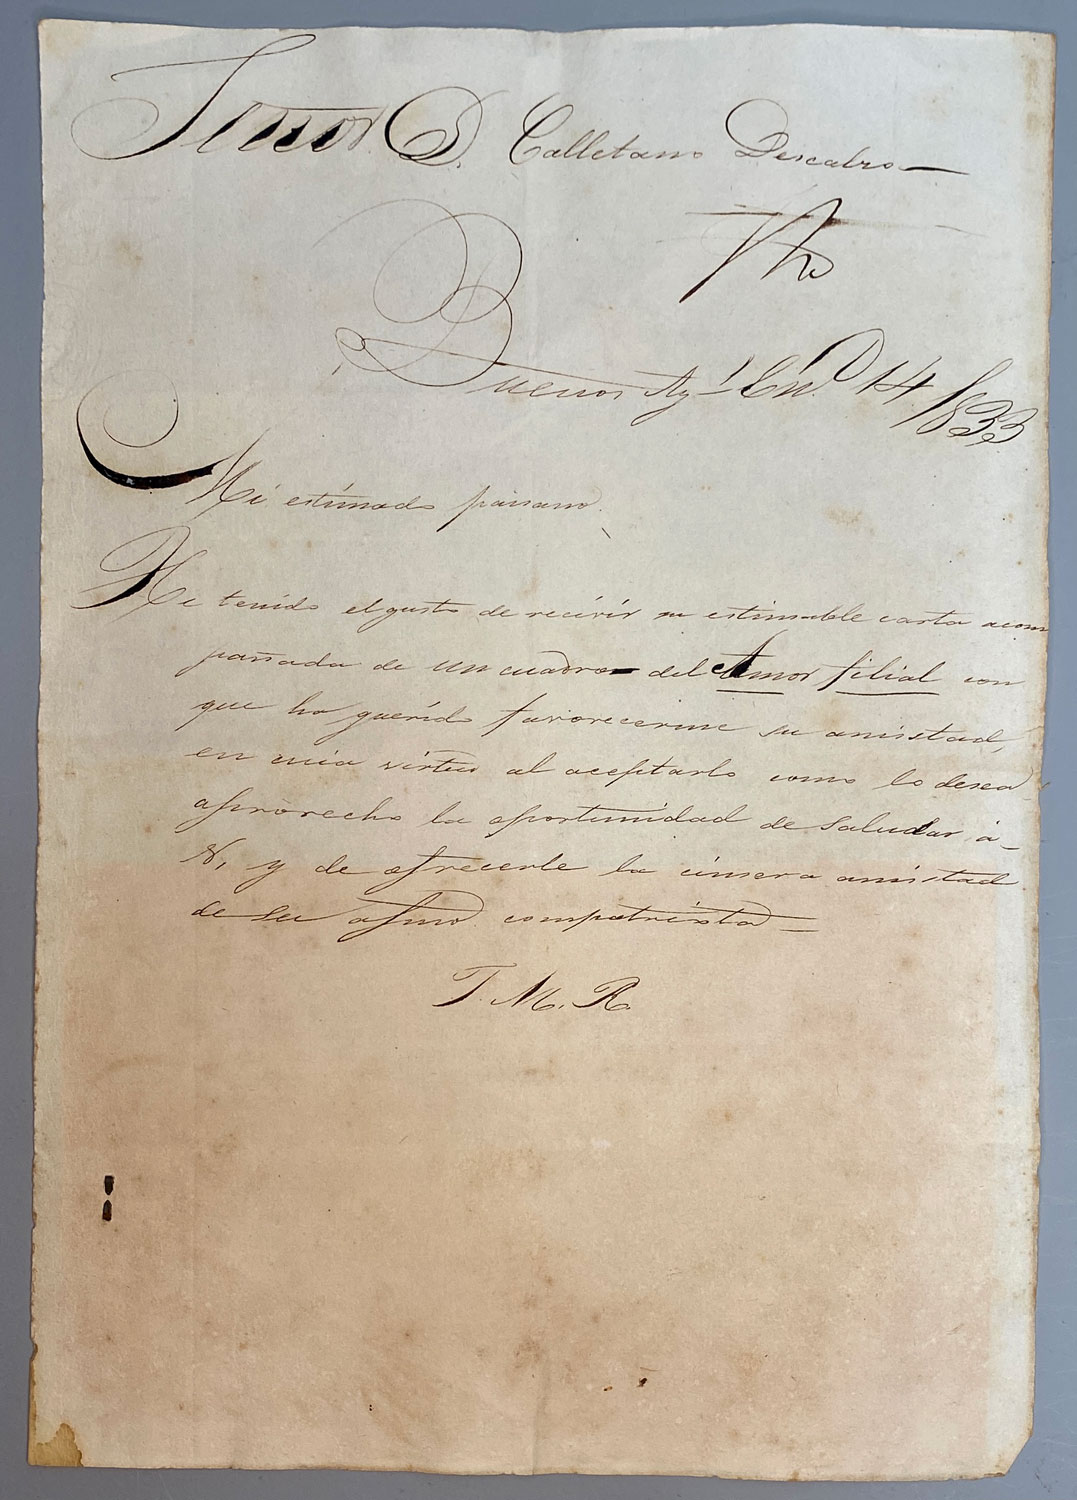 Señor D. Calletano Descalzo
Buenos Ay.s En.o 14/833
Mi estimado paisano.
He tenido el gusto de recivir su estimable carta acom
pañada de un cuadro del Amor filial con
que ha querido favorecerme su amistad,
en cuia virtud al aceptarlo como lo desea
aprovecho la oportunidad de saludar á
V, y de ofrecerle la sinsera amistad
de su afmo compatriota
T. M. R.